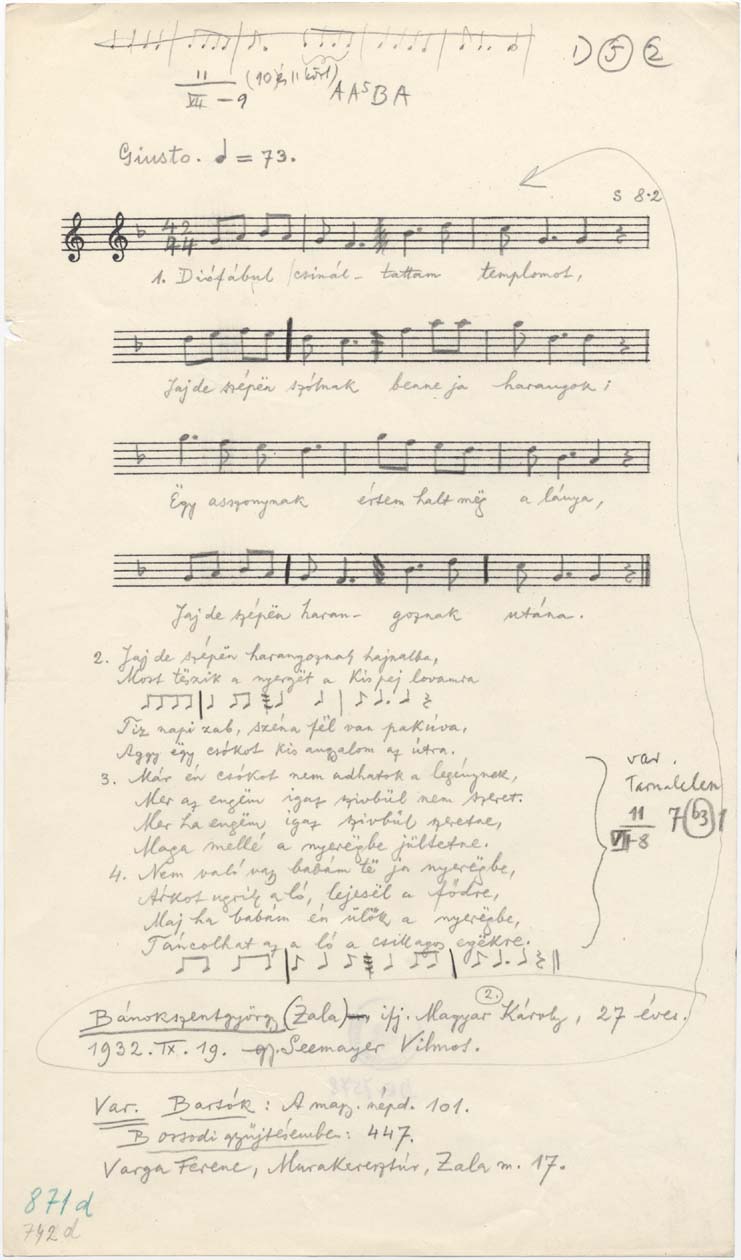 1) 5 2
11 (10 és 11 közt)
VII–9 AA⁵BA
Giusto. = 73.
S 8·2
4 2
4 4
1. Diófábul csinál- tattam templomot,
Jaj de szépën szólnak benne ja harangok;
Ëgy asszonynak értem halt mëg a lánya,
Jaj de szépën haran- goznak utána.
2. Jaj de szépën harangoznak hajnalba,
Most tëszik a nyergët a kis pej lovamra
Tiz napi zab, széna fël van pakúva,
Aggy ëgy csókot kis angyalom az útra.
3. Már én csókot nem adhatok a legénynek,
Mer az engëm igaz szivbül nem szeret.
Mer ha engëm igaz szivbül szeretne,
Maga mellé a nyerëgbe jültetne.
4. Nem való vagy babám të ja nyerëgbe,
Árkot ugrik a ló, lejesël a fődre,
Maj ha babám én ülök a nyerëgbe,
Táncolhat az a ló a csillagos egëkre.
var.
Tarnalelesz
11 7 b3 1
VII–8
Bánokszentgyörgy (Zala) ifj. Magyar Károly, 27 éves.
2.
1932. IX. 19. gy. Seemayer Vilmos.
Var. Bartók: A mag. népd. 101.
Borsodi gyűjtésemben: 447.
Varga Ferenc, Murakeresztúr, Zala m. 17.
871d
742d